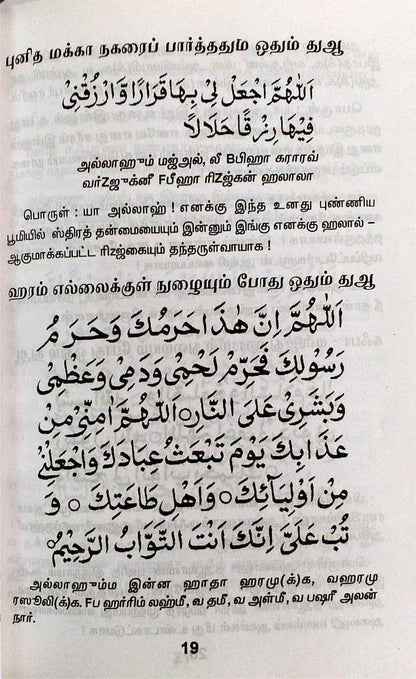 புனித மக்கா நகரைப் பார்த்ததும் ஓதும் துஆ
اَللّٰهُمَّ اجْعَلْ لِيْ بِهَا قَرَارًا وَّارْزُقْنِيْ
فِيْهَا رِزْقًا حَلَالًا
அல்லாஹும் மஜ்அல், லீ Bபிஹா கராரவ்
வர்Zஜுக்னீ Fபீஹா ரிZஜ்கன் ஹலாலா
பொருள் : யா அல்லாஹ் ! எனக்கு இந்த உனது புண்ணிய
பூமியில் ஸ்திரத் தன்மையையும் இன்னும் இங்கு எனக்கு ஹலால் –
ஆகுமாக்கப்பட்ட ரிZஜ்கையும் தந்தருள்வாயாக !
ஹரம் எல்லைக்குள் நுழையும் போது ஓதும் துஆ
اَللّٰهُمَّ اِنَّ هٰذَا حَرَمُكَ وَحَرَمُ
رَسُوْلِكَ فَحَرِّمْ لَحْمِيْ وَدَمِيْ وَعَظْمِيْ
وَبَشَرِيْ عَلَى النَّارِ○ اَللّٰهُمَّ اٰمِنِّيْ مِنْ
عَذَابِكَ يَوْمَ تَبْعَثُ عِبَادَكَ وَاجْعَلْنِيْ
مِنْ اَوْلِيَآئِكَ○ وَاَهْلِ طَاعَتِكَ ○ وَ
تُبْ عَلَيَّ اِنَّكَ اَنْتَ التَّوَّابُ الرَّحِيْمُ○
அல்லாஹும்ம இன்ன ஹாதா ஹரமு(க்)க, வஹரமு
ரஸூலி(க்)க. Fப ஹர்ரிம் லஹ்மீ, வ தமீ, வ அள்மீ, வ பஷரீ அலன்
நார்.
19